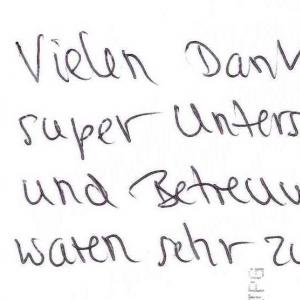 Vielen Dank
super Unters
und Betreuu
waren sehr zu
TPG